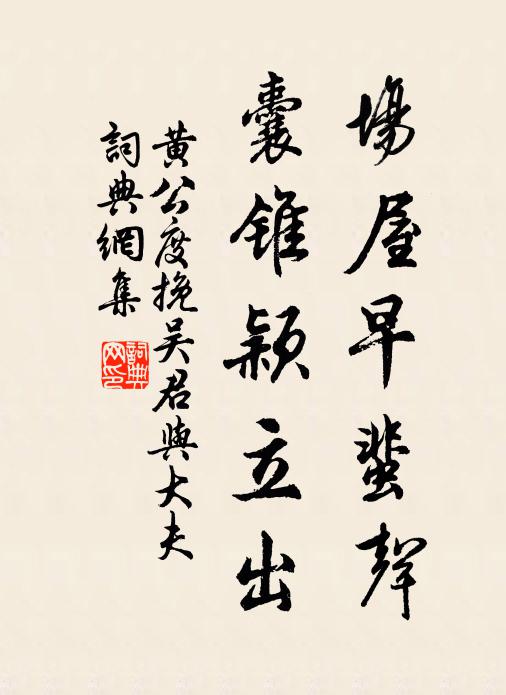 場屋早蜚聲
囊錐穎立出
黃公度挽吴君與大夫
詞典網集
詞典網印